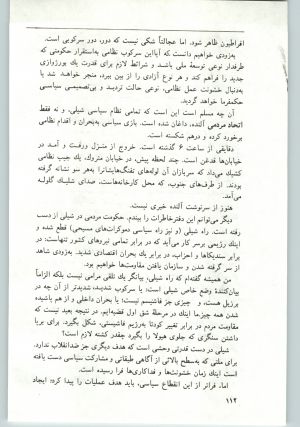 افراطیون ظاهر شود. اما عجالتاً شکی نیست که دور، دور سرکوبی است.
بزودی خواهیم دانست که آیا این سرکوب نظامی به استقرار حکومتی که
طرفدار نوعی توسعهٔ ملی باشد و شرائط لازم برای قدرت یک بورژوازی
جدید را فراهم کند و هر نوع آزادی را از بین ببرد، منجر خواهد شد یا
بدنبال خشونت عمل نظامی، نوعی حالت تردید و بی‌تصمیمی سیاسی
حکمفرما خواهد گردید.
آن چه مسلم است این است که تمامی نظام سیاسی شیلی، و نه فقط
اتحاد مردمی آلنده، داغان شده است. بازی سیاسی به بحران و اقدام نظامی
برخورد کرده و درهم شکسته است.
دقایقی از ساعت ۶ گذشته است. خروج از منزل و رفت و آمد در
خیابان‌ها قدغن است. چند لحظه پیش، در خیابان متروک، یک جیپ نظامی
کشیک می‌داد که سربازان آن لوله‌های تفنگ‌هایشان را به هر سو نشانه گرفته
بودند. از طرف‌های جنوب، که محل کارخانه‌هاست، صدای شلیک گلوله
می‌آمد.
هنوز از سرنوشت آلنده خبری نیست.
دیگر می‌توانم این دفتر خاطرات را ببندم. حکومت مردمی در شیلی از دست
رفته است. راه شیلی (و نیز راه سیاسی دموکرات‌های مسیحی) قطع شده و
اینک رژیمی برسر کار می‌آید که در برابر تمامی نیروهای کشور تنهاست: در
برابر سندیکاها و احزاب، در برابر یک بحران اقتصادی شدید. بزودی شاهد
از سر گرفته شدن و سازمان یافتن مقاومت‌ها خواهیم بود.
من همیشه گفته‌ام که راه شیلی، بیانگر یک تلقی مرامی نیست بلکه الزاماً
بیان‌کنندهٔ وضع خاص شیلی است؛ یا سرکوب شدید، شدیدتر از آن چه در
برزیل هست، و چیزی جز فاشیسم نیست؛ یا بحران داخلی و از هم پاشیده
شدن همه چیز؛ ما اینک در مرحلهٔ شق اول قضیه‌ایم. در نتیجه بعید نیست که
مقاومت مردم در برابر تغییر کودتا به رژیم فاشیستی، شکل بگیرد. برای برپا
داشتن سنگری که جلوی هیولا را بگیرد چقدر کشته لازم است؟
شیلی در دست قدرتی وحشی است که هدف دیگری جز ضدانقلاب ندارد.
برای ملتی که به سطح بالائی از آگاهی طبقاتی و مشارکت سیاسی دست یافته
است اینک زمان خشونت‌ها و فداکاری‌ها فرا رسیده است.
اما، فراتر از این انقطاع سیاسی، باید هدف عملیات را پیدا کرد؛ ایجاد
۱۱۲